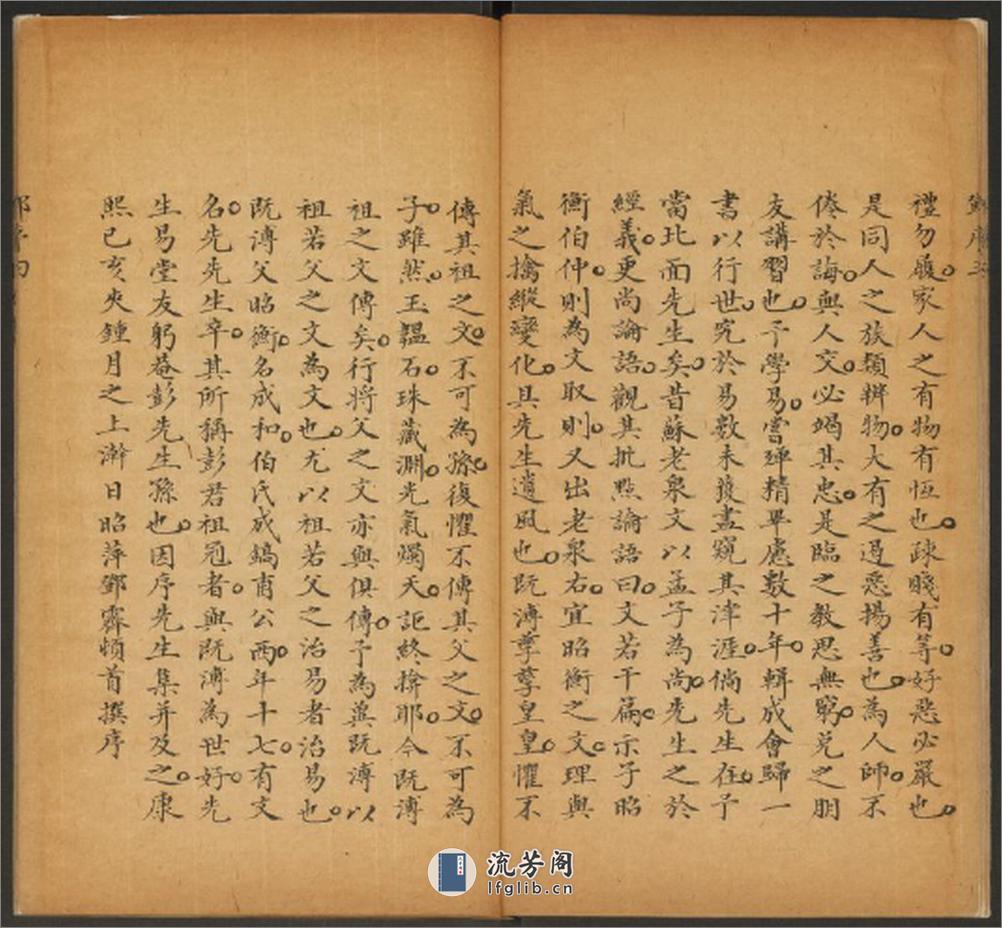 禮勿履家人之有物有恆也疎賤有等好惡必嚴也
是同人之族類辨物大有之遏惡揚善也為人師不
倦於誨與人交必竭其忠是臨之教思無窮兌之朋
友講習也予學易嘗殫精畢慮數十年輯成會歸一
書以行世究於易數未獲盡窺其津涯倘先生在予
當北面先生矣昔蘇老泉文以孟子為尚先生之於
經義更尚論語觀其批點論語曰文若干篇示子昭
衡伯仲則為文取則又出老泉右宜昭衡之文理與
氣之擒縱變化具先生遺風也既溥孳孳皇皇懼不
傳其祖之文不可為孫復懼不傳其父之文不可為
子雖然玉韞石珠藏淵光氣燭天詎終揜耶今既溥
祖之文傳矣行將父之文亦與俱傳予為冀既溥以
祖若父之文為文也尤以祖若父之治易者治易也
既溥父昭衡名成和伯氏成鎬甫公西年十七有文
名先先生卒其所稱彭君祖冠者與既溥為世好先
生易堂友躬菴彭先生孫也因序先生集并及之康
熙己亥夾鍾月之上澣日昭萍鄧霽頓首撰序
流芳阁
lfglib.cn